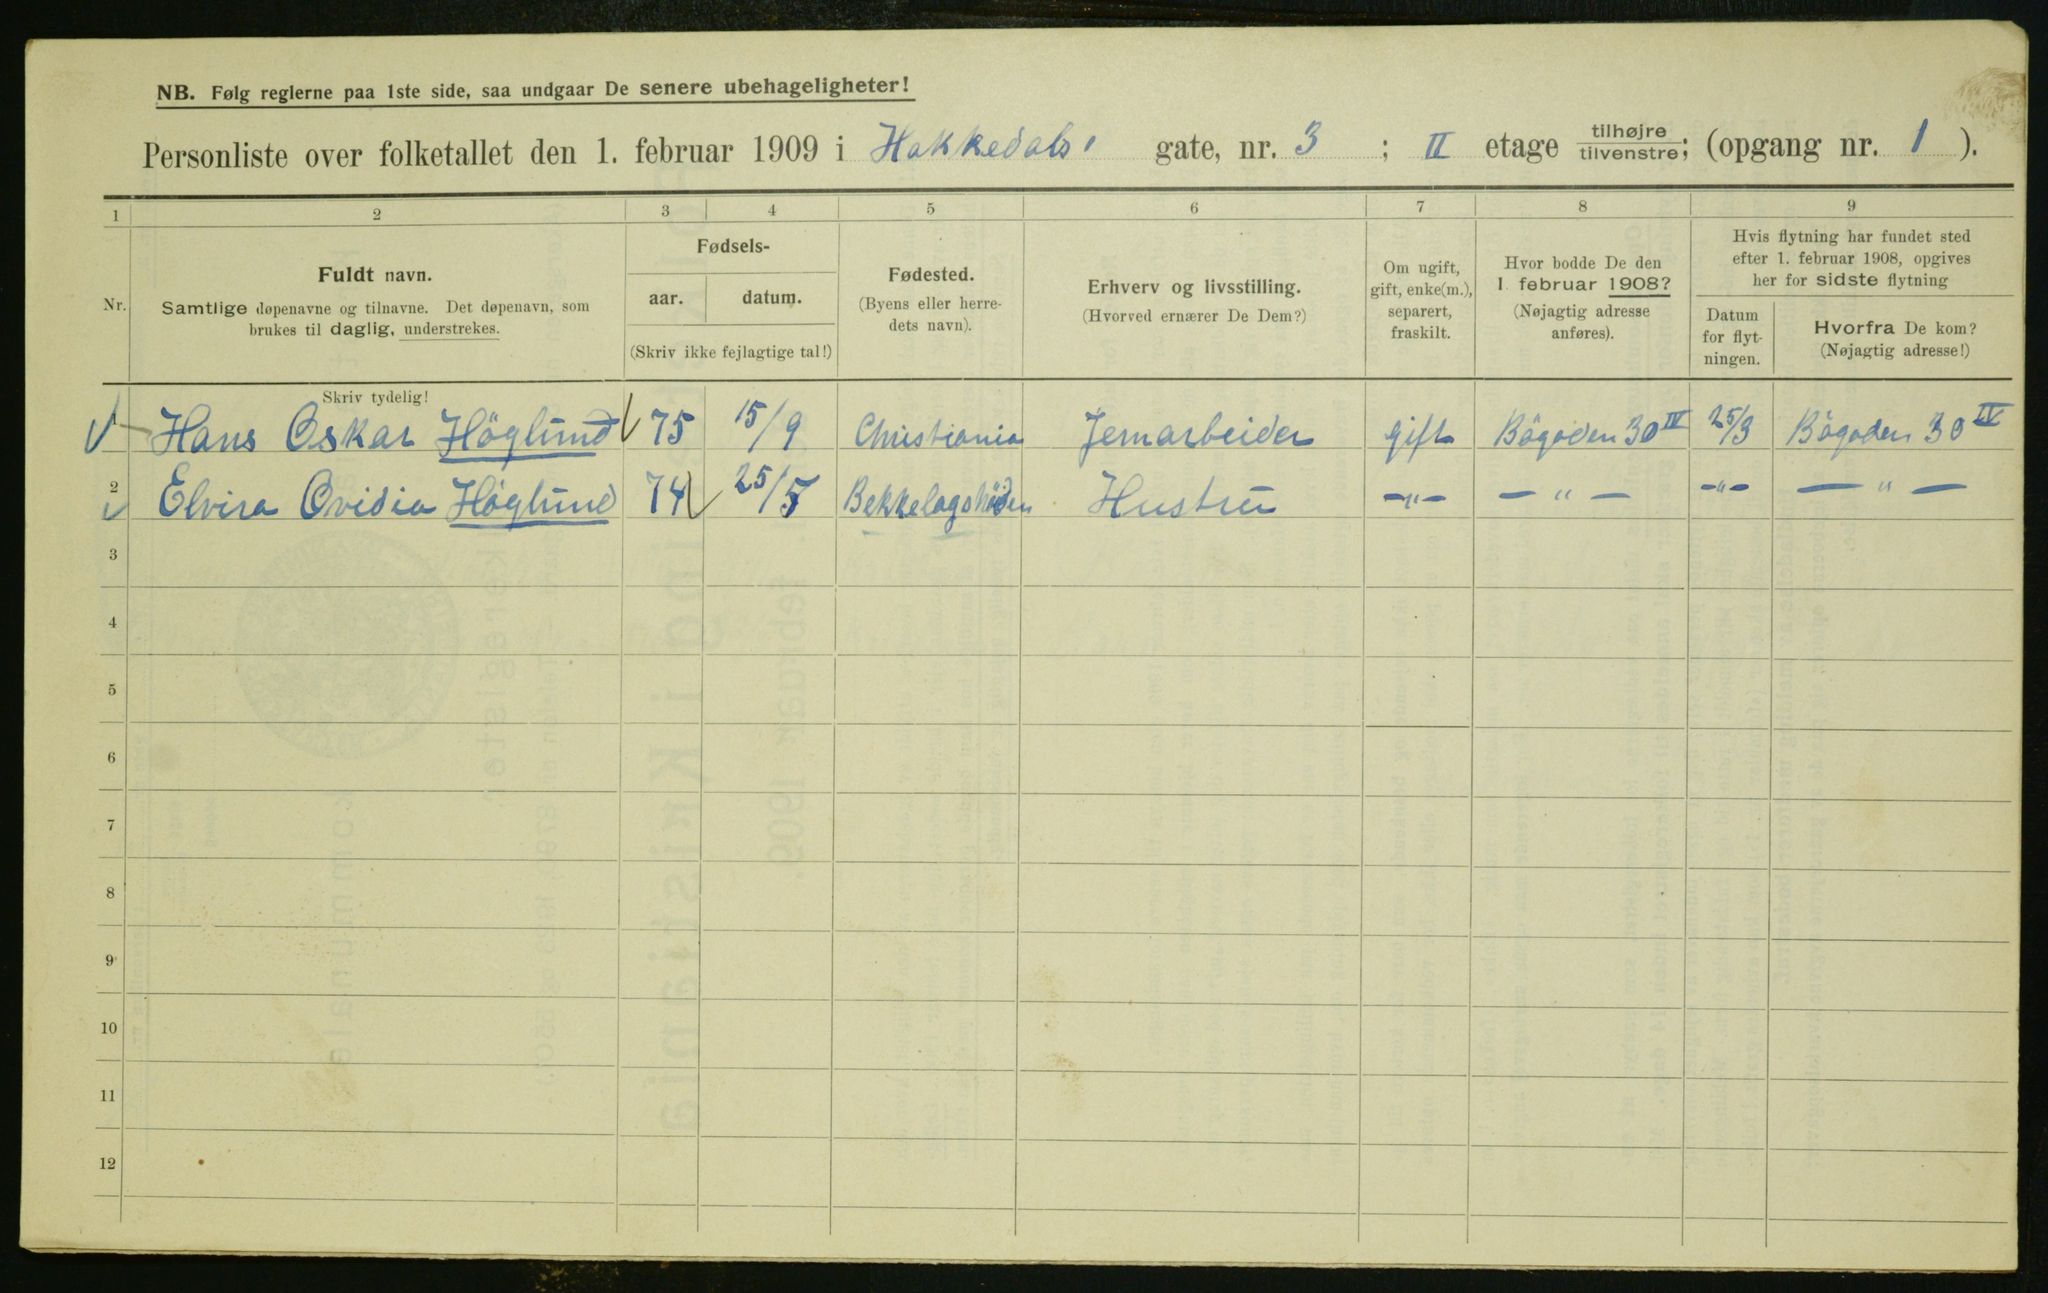 NB. Følg reglerne paa 1ste side, saa undgaar De senere ubehageligheter!
Personliste over folketallet den 1. februar 1909 i Hakkedals gate, nr. 3 ; II etage tilhøjre tilvenstre; (opgang nr. 1 ).
1 2 3 4 5 6 7 8 9
Nr.
Fuldt navn.
Samtlige døpenavne og tilnavne. Det døpenavn, som
brukes til daglig, understrekes.
Fødsels-
aar. datum.
(Skriv ikke fejlagtige tal!)
Fødested.
(Byens eller herre-
dets navn).
Erhverv og livsstilling.
(Hvorved ernærer De Dem?)
Om ugift,
gift, enke(m.),
separert,
fraskilt.
Hvor bodde De den
1. februar 1908?
(Nøjagtig adresse
anføres).
Hvis flytning har fundet sted
efter 1. februar 1908, opgives
her for sidste flytning
Datum
for flyt-
ningen.
Hvorfra De kom?
(Nøjagtig adresse!)
Skriv tydelig!
Hans Oskar Höglund 75 15/9 Christiania Jernarbeider gift Bögaden 30 IV 25/3 Bögaden 30 IV
2 Elvira Ovidia Höglund 74 25/5 Bekkelagshöiden Hustru -„- - „ - -„- - „ -
3
4
5
6
7
8
9
10
11
12